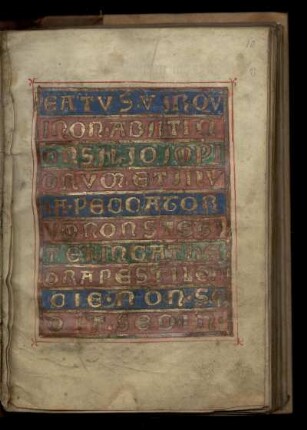 EATVS·VIRQV
INONABIITIN
CONSILIOIMPI
ORVM·ETINVI
APECCATOR
VMNONSTET
TEINCATHE
DRAPESTILEN
CIE·NON·S
DIT·SED·IN